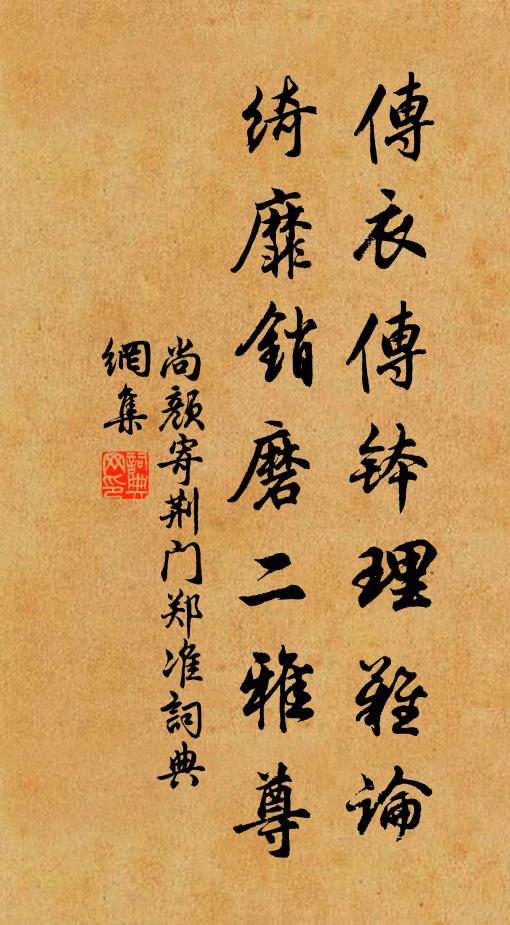 傳衣傳鉢理難論
綺靡銷磨二雅尊
尚顏寄荆门郑准詞典
網集
詞典
网印